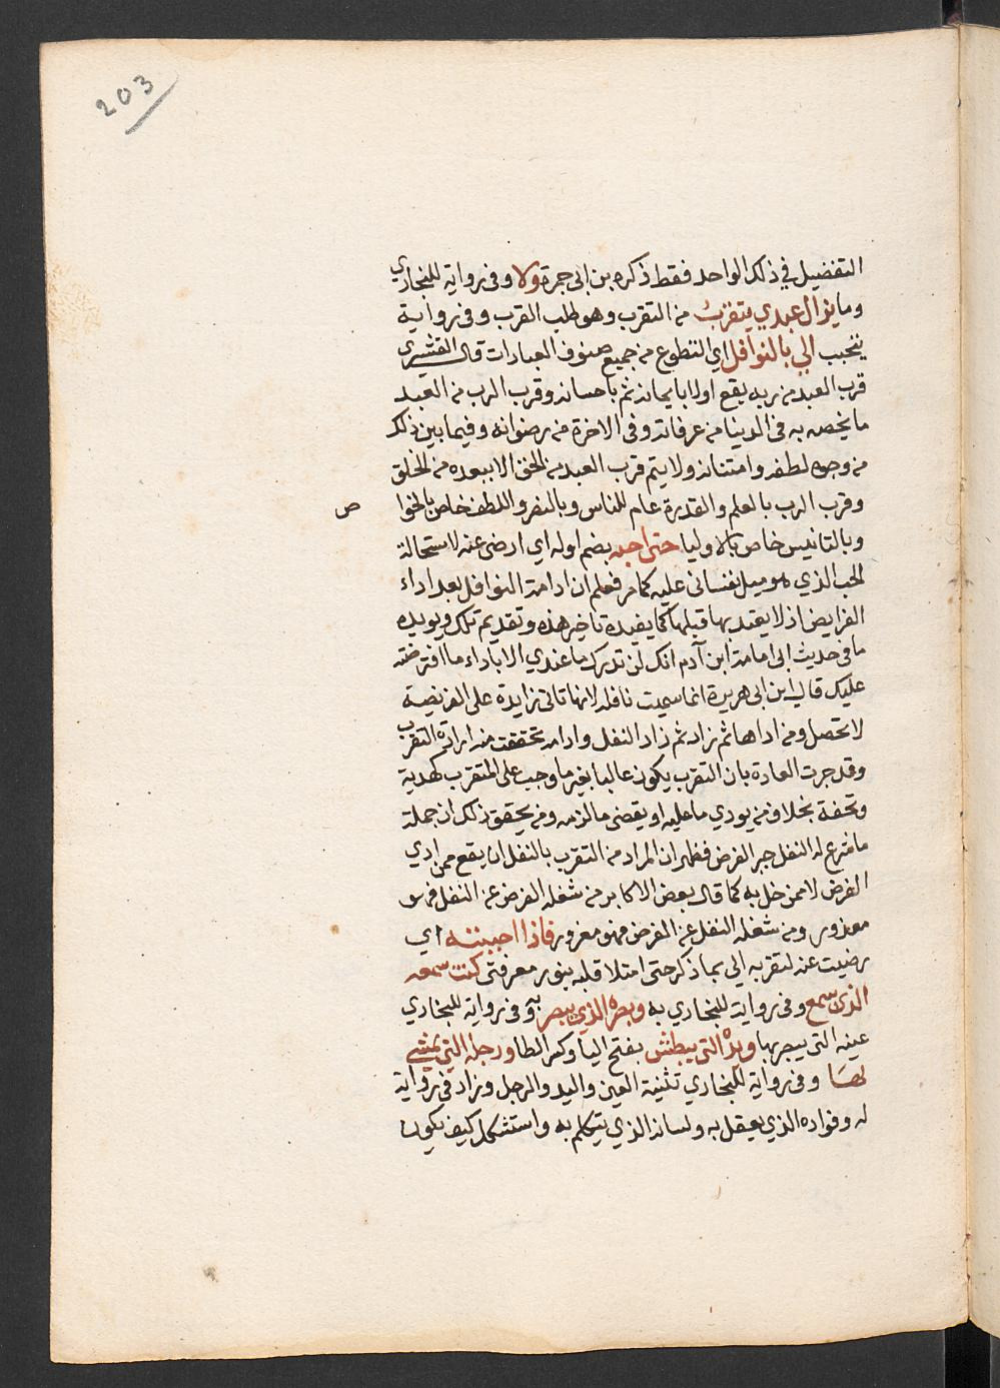 203
التفضيل في ذلك الواحد فقط ذكره بن ابي جمرة ولا وفي رواية للبخاري
وما يزال عبدي يتقرب من التقرب وهو طلب القرب وفي رواية
يتحبب الي بالنوافل اي التطوع من جميع صنوف العبادات قال القشيري
قرب العبد من ربه يقع اولا بايمانه ثم باحسانه وقرب الرب من العبد
ما يخصه به في الدينا من عرفانه وفي الاخرة من رضوانه وفيما بين ذلك
من وجوه لطفه وامتنانه ولا يتم قرب العبد من الحق الا ببعده من الخلق
وقرب الرب بالعلم والقدرة عام للناس وبالنصر واللطف خاص بالخوا
ص
وبالتانيس خاص بالاوليا حتى احبه بضم اوله اي ارضى عنه لاستحالة
الحب الذي هو ميل نفساني عليه كما مر فعلم ان ادامة النوافل بعد اداء
الفرايض اذ لا يعتد بها قبلها كما يفيده تاخير هذه وتقديم تلك ويويده
ما في حديث ابي امامة ابن آدم انك لن تدرك ما عندي الا باداء ما افترضته
عليك قال ابن ابي هريرة انما سميت نافلة لانها تاتي زايدة على الفريضة
لا تحصل ومن اداها ثم زاد ثم زاد النفل وادامه تحققت منه ارادة التقرب
وقد جرت العادة بان التقرب يكون غالبا بغير ما وجب على المتقرب كهدية
وتحفة بخلاف من يودي ما عليه او يقضي ما لزمه ومن يحقق ذلك ان جملة
ما شرع له النفل جبر الفرض فظهر ان المراد من التقرب بالنفل ان يقع ممن ادي
الفرض لا ممن خل به كما قال بعض الاكابر من شغله الفرض عن النفل فهو
معذور ومن شغله النفل عن الفرض فهو مغرور فاذا احببته اي
رضيت عنه لتقربه الي بما ذكر حتى امتلا قلبه بنور معرفتي كنت سمعه
الذي سمع وفي رواية للبخاري به وبصره الذي يبصر به وفي رواية للبخاري
عينه التي يبصر بها ويده التي يبطش بفتح اليا وكسر الطا ورجله التي يمشي
بها وفي رواية للبخاري تثنية العين واليد والرجل وزاد في رواية
له وفواده الذي يعقل به ولسانه الذي يتكلم به واستشكل كيف يكون